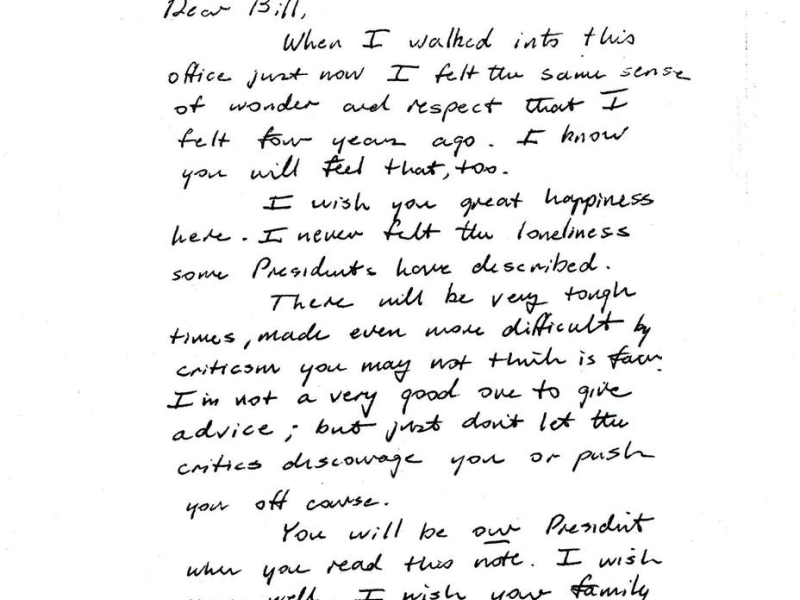 Dear Bill,
When I walked into this
office just now I felt the same sense
of wonder and respect that I
felt four years ago. I know
you will feel that, too.
I wish you great happiness
here. I never felt the loneliness
some Presidents have described.
There will be very tough
times, made even more difficult by
criticism you may not think is fair.
I'm not a very good one to give
advice; but just don't let the
critics discourage you or push
you off course.
You will be our President
when you read this note. I wish
you well. I wish your family